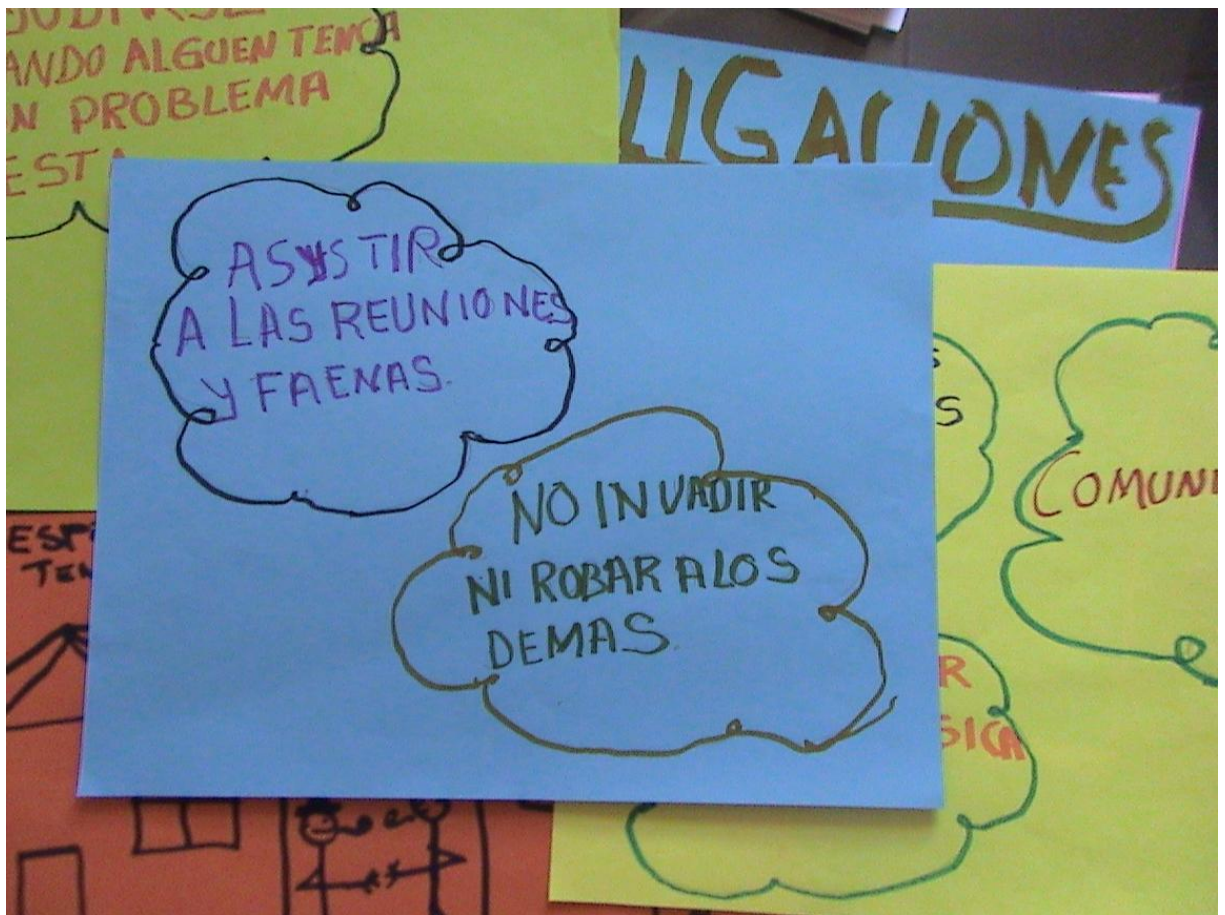 ANDO ALGUEN TENGA
N PROBLEMA
EST
LIGACIONES
ASYSTIR
A LAS REUNIONES
Y FAENAS.
NO INVADIR
NI ROBAR A LOS
DEMAS.
S
S
COMUNI
ESP
TEN
R
SICA